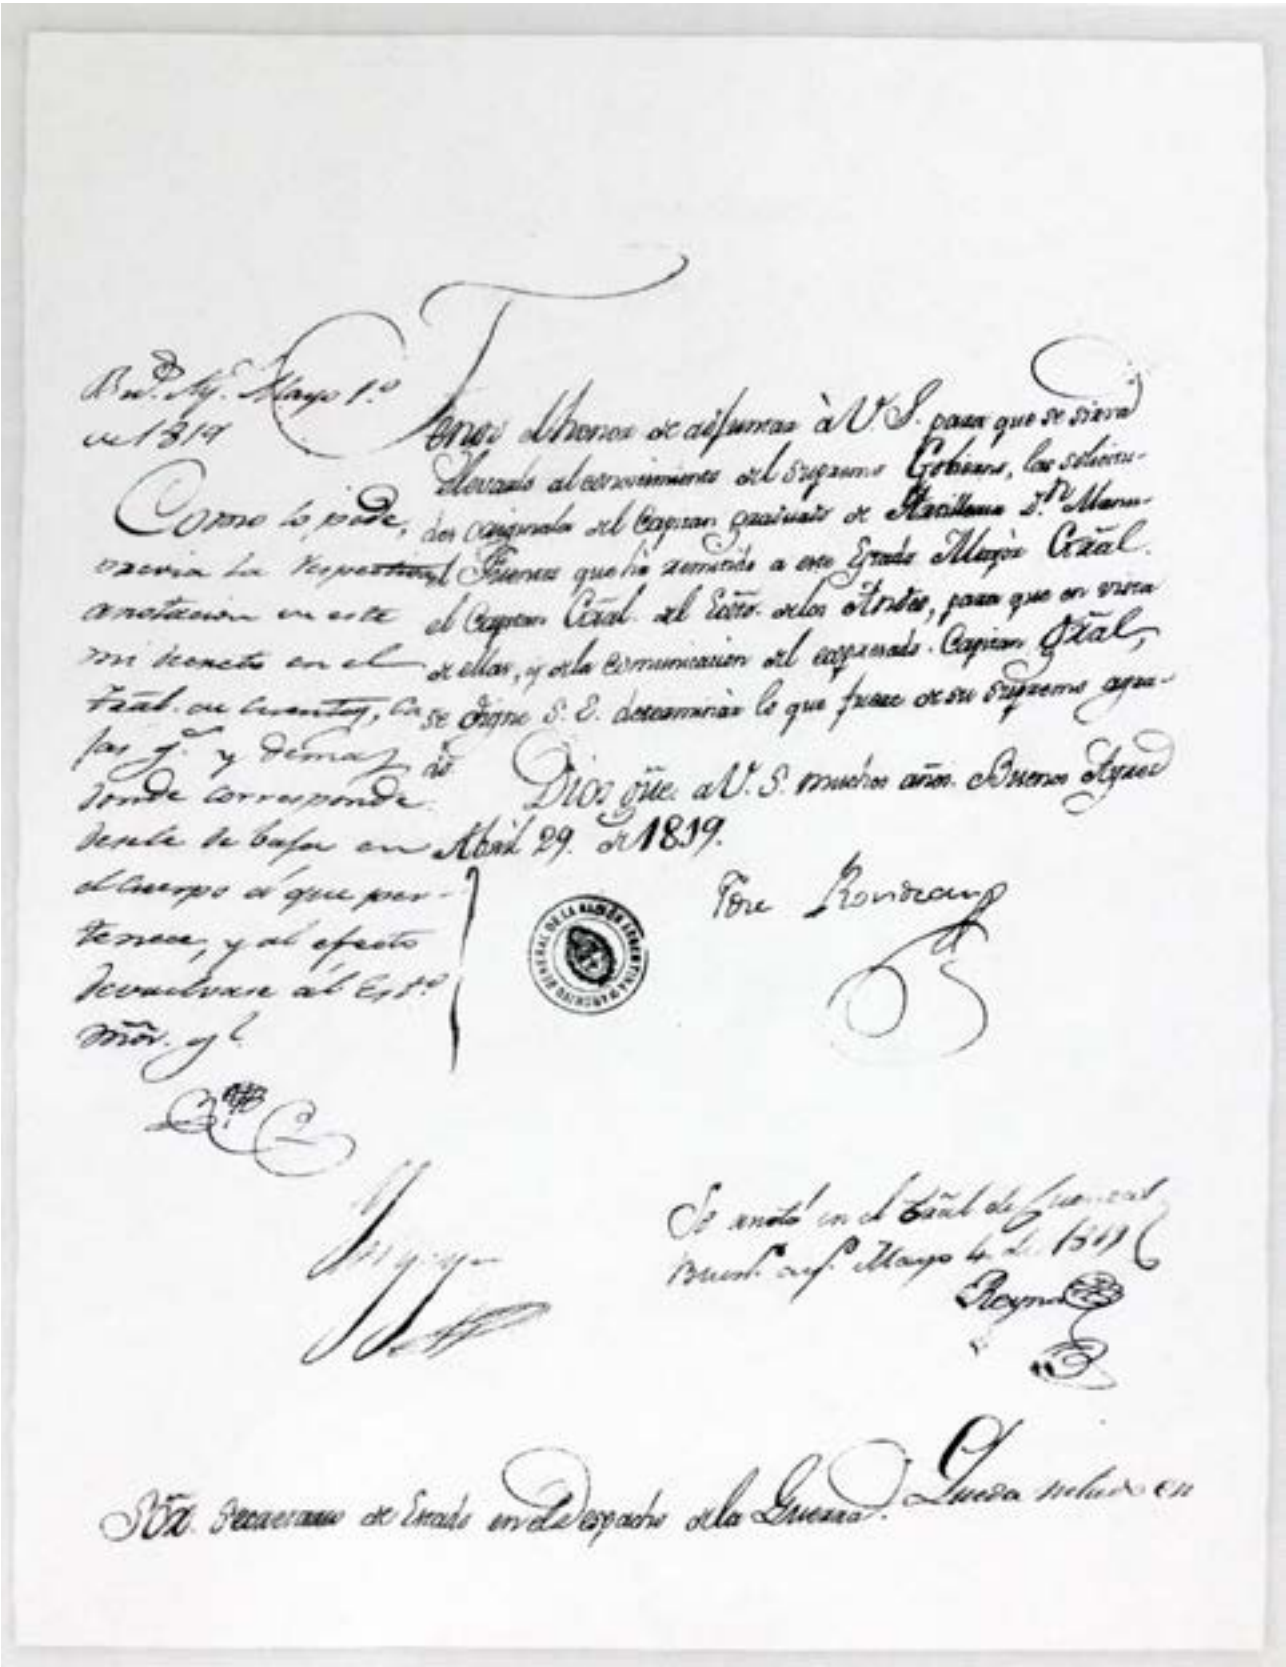 Bu.s Ay.s Mayo 1.º
de 1819
Como lo pide,
previa la respectiva
anotacion en este
mi decreto en el
Trãl. de Cuentas, Ca
jas g.s y demas
donde corresponde
desele de baja en
el Cuerpo á que per-
tenece, y al efecto
devuelvase al Est.º
Mõr. gl.
Tengo el honor de adjuntar à V S. para que se sirva
llevarlo al conocimiento del Supremo Gobierno, las solicitu-
des originales del Capitan graduado de Artilleria D.n Manu-
el Fuentes que há remitido a este Estado Mayòr Grãl.
el Capitan Grãl. del Exto. de los Andes, para que en vista
de ellas, y de la comunicacion del expresado Capitan Grãl,
se digne S. E. determinàr lo que fuere de su Supremo agra-
do.
Dios gũe. a V. S. muchos años. Buenos Ayres
Abril 29. de 1819.
Jose Rondeau
ARCHIVO GENERAL DE LA NACIÓN ARGENTINA
Se anotó en el trãl de Cuentas
Buen.s ay.s Mayo 4 de 1819
Reyna
Sõr. Secretario de Estado en el Despacho de la Guerra.
Queda en